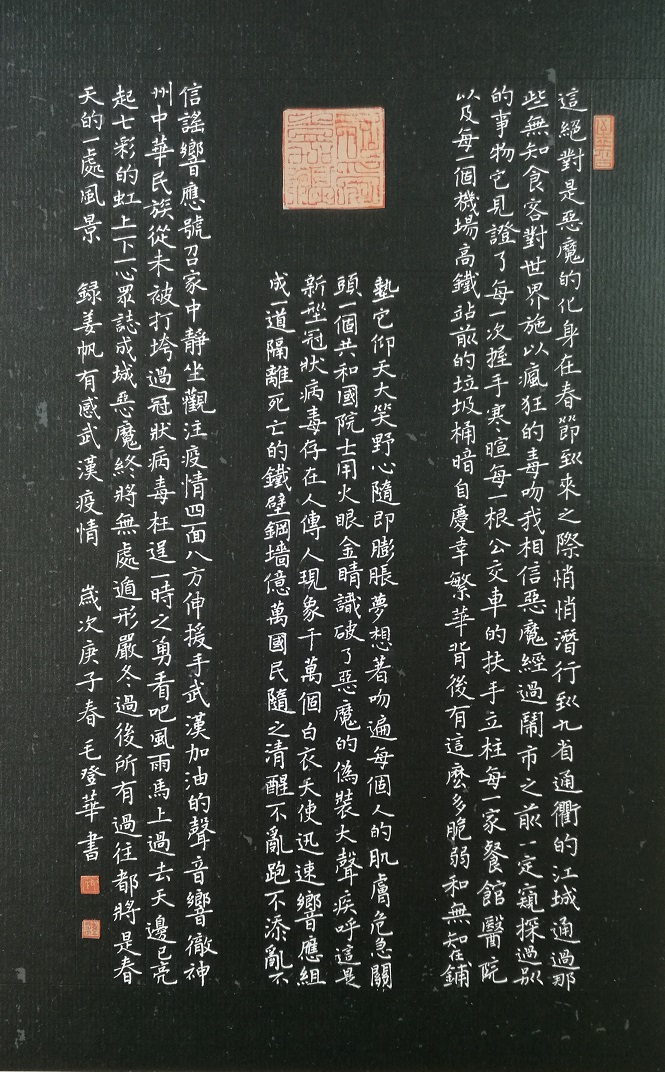 這絕對是惡魔的化身在春節到來之際悄悄潛行到九省通衢的江城通過那
些無知食客對世界施以瘋狂的毒吻我相信惡魔經過鬧市之前一定窺探過別
的事物它見證了每一次握手寒暄每一根公交車的扶手立柱每一家餐館醫院
以及每一個機場高鐵站前的垃圾桶暗自慶幸繁華背後有這麼多脆弱和無知在鋪
墊它仰天大笑野心隨即膨脹夢想著吻遍每個人的肌膚危急關
頭一個共和國院士用火眼金睛識破了惡魔的偽裝大聲疾呼這是
新型冠狀病毒存在人傳人現象千萬個白衣天使迅速響應組
成一道隔離死亡的鐵壁鋼墻億萬國民隨之清醒不亂跑不添亂不
信謠響應號召家中靜坐觀注疫情四面八方伸援手武漢加油的聲音響徹神
州中華民族從未被打垮過冠狀病毒枉逞一時之勇看吧風雨馬上過去天邊已亮
起七彩的虹上下一心眾誌成城惡魔終將無處遁形嚴冬過後所有過往都將是春
天的一處風景 録姜帆有感武漢疫情 歲次庚子春毛登華書